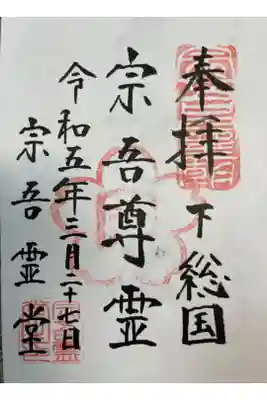 奉拝
下総国
宗吾尊霊
令和五年三月二十七日
宗吾霊堂